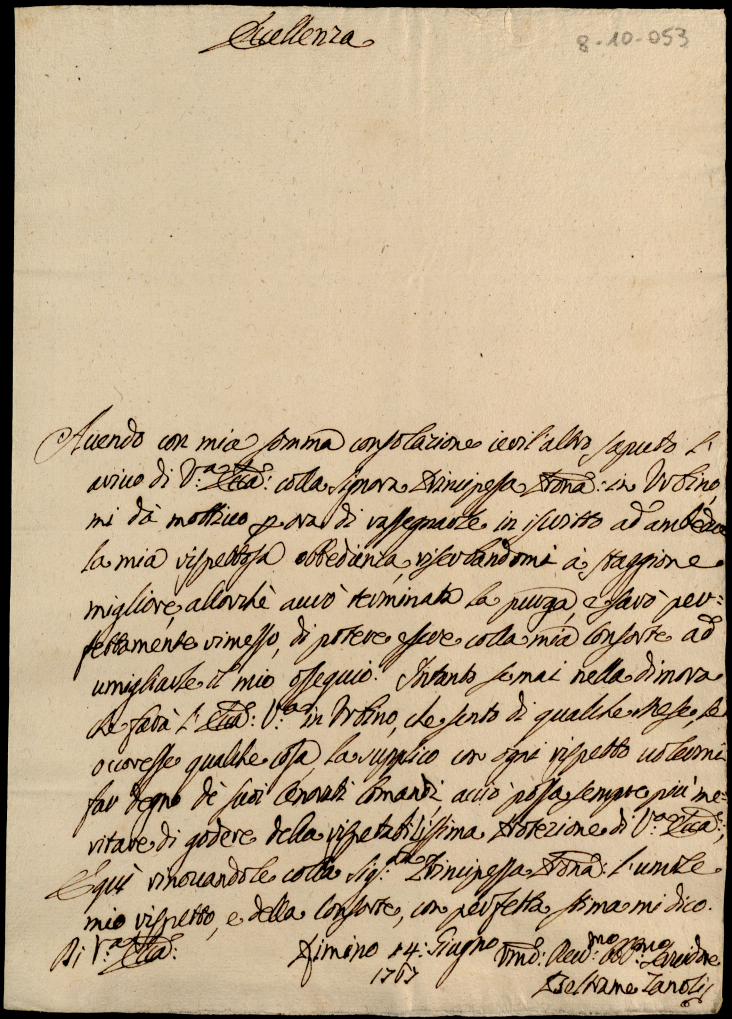 Eccellenza
8-10-053
Avendo con mia somma consolazione ieril'altro saputo l'
arivo di V.ª Ecca: colla Signora Principessa Prona: in Urbino,
mi dà mottivo per ora di rassegnarle in iscritto ad ambedue
la mia rispettosa obbedienza, riserbandomi à staggione
migliore, allorchè avrò terminata la purga, e sarò per=
fettamente rimesso, di potere essere colla mia Consorte ad
umigliarle il mio ossequio. Intanto se mai nella dimora
che farà l'Ecca: V.ª in Urbino, che sento di qualche Mese, le
occoresse qualche cosa, la supplico con ogni rispetto volermi
far degno de suoi venerati Comandi, acciò possa sempre più me=
ritare di godere della rispetabilissima Protezione di V.ª Ecca:,
E quì rinovandole colla Sig.ra Principessa Prona: l'umile
mio rispetto, e della Consorte, con perfetta stima mi dico.
Di V.ª Ecca:
Rimino 14: Giugno
1767
Umo: Devmo Obbmo: Servidore
Beltrame Zanoli